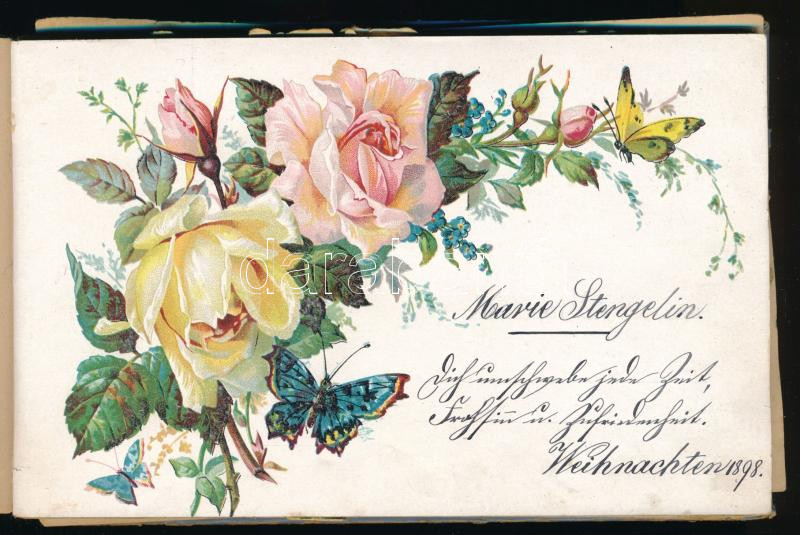 Marie Stengelin.
Dich umschwebe jede Zeit,
Frohsinn u. Zufriedenheit.
Weihnachten 1898.